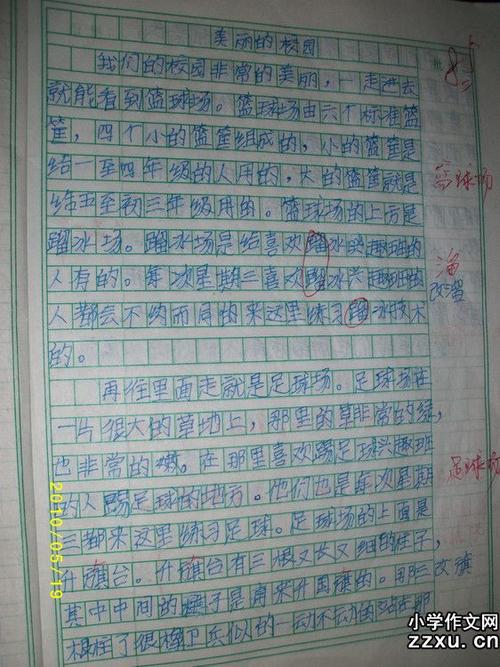 美丽的校园
我们的校园非常的美丽，一走进去
就能看到篮球场。篮球场由六个标准篮
筐，四个小的篮筐组成的，小的篮筐是
给一至四年级的人用的，大的篮筐就是
给五至初三年级用的。篮球场的上方是
溜冰场。溜冰场是给喜欢溜冰兴趣班的
人有的。每次星期三喜欢溜冰兴趣班的
人都会不约而同的来这里练习溜冰技术
的。
再往里面走就是足球场。足球场在
一片很大的草地上，那里的草非常的绿，
也非常的嫩。在那里喜欢踢足球兴趣班
的人踢足球的地方。他们也是每次星期
三都来这里练习足球。足球场的上面是
升旗台。升旗台有三根又长又细的柱子，
其中中间的是用来升国旗的。那三
根柱子很像卫兵似的一动不动的站在那
85
篮球场
溜
改溜
足球场
改旗
2010/05/19
小学作文网
zzxu.cn